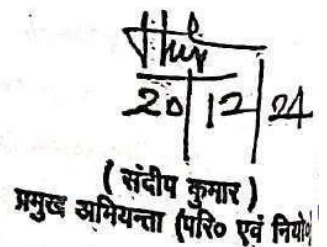 20/12/24
( संदीप कुमार )
प्रमुख अभियन्ता (परि० एवं नियो०